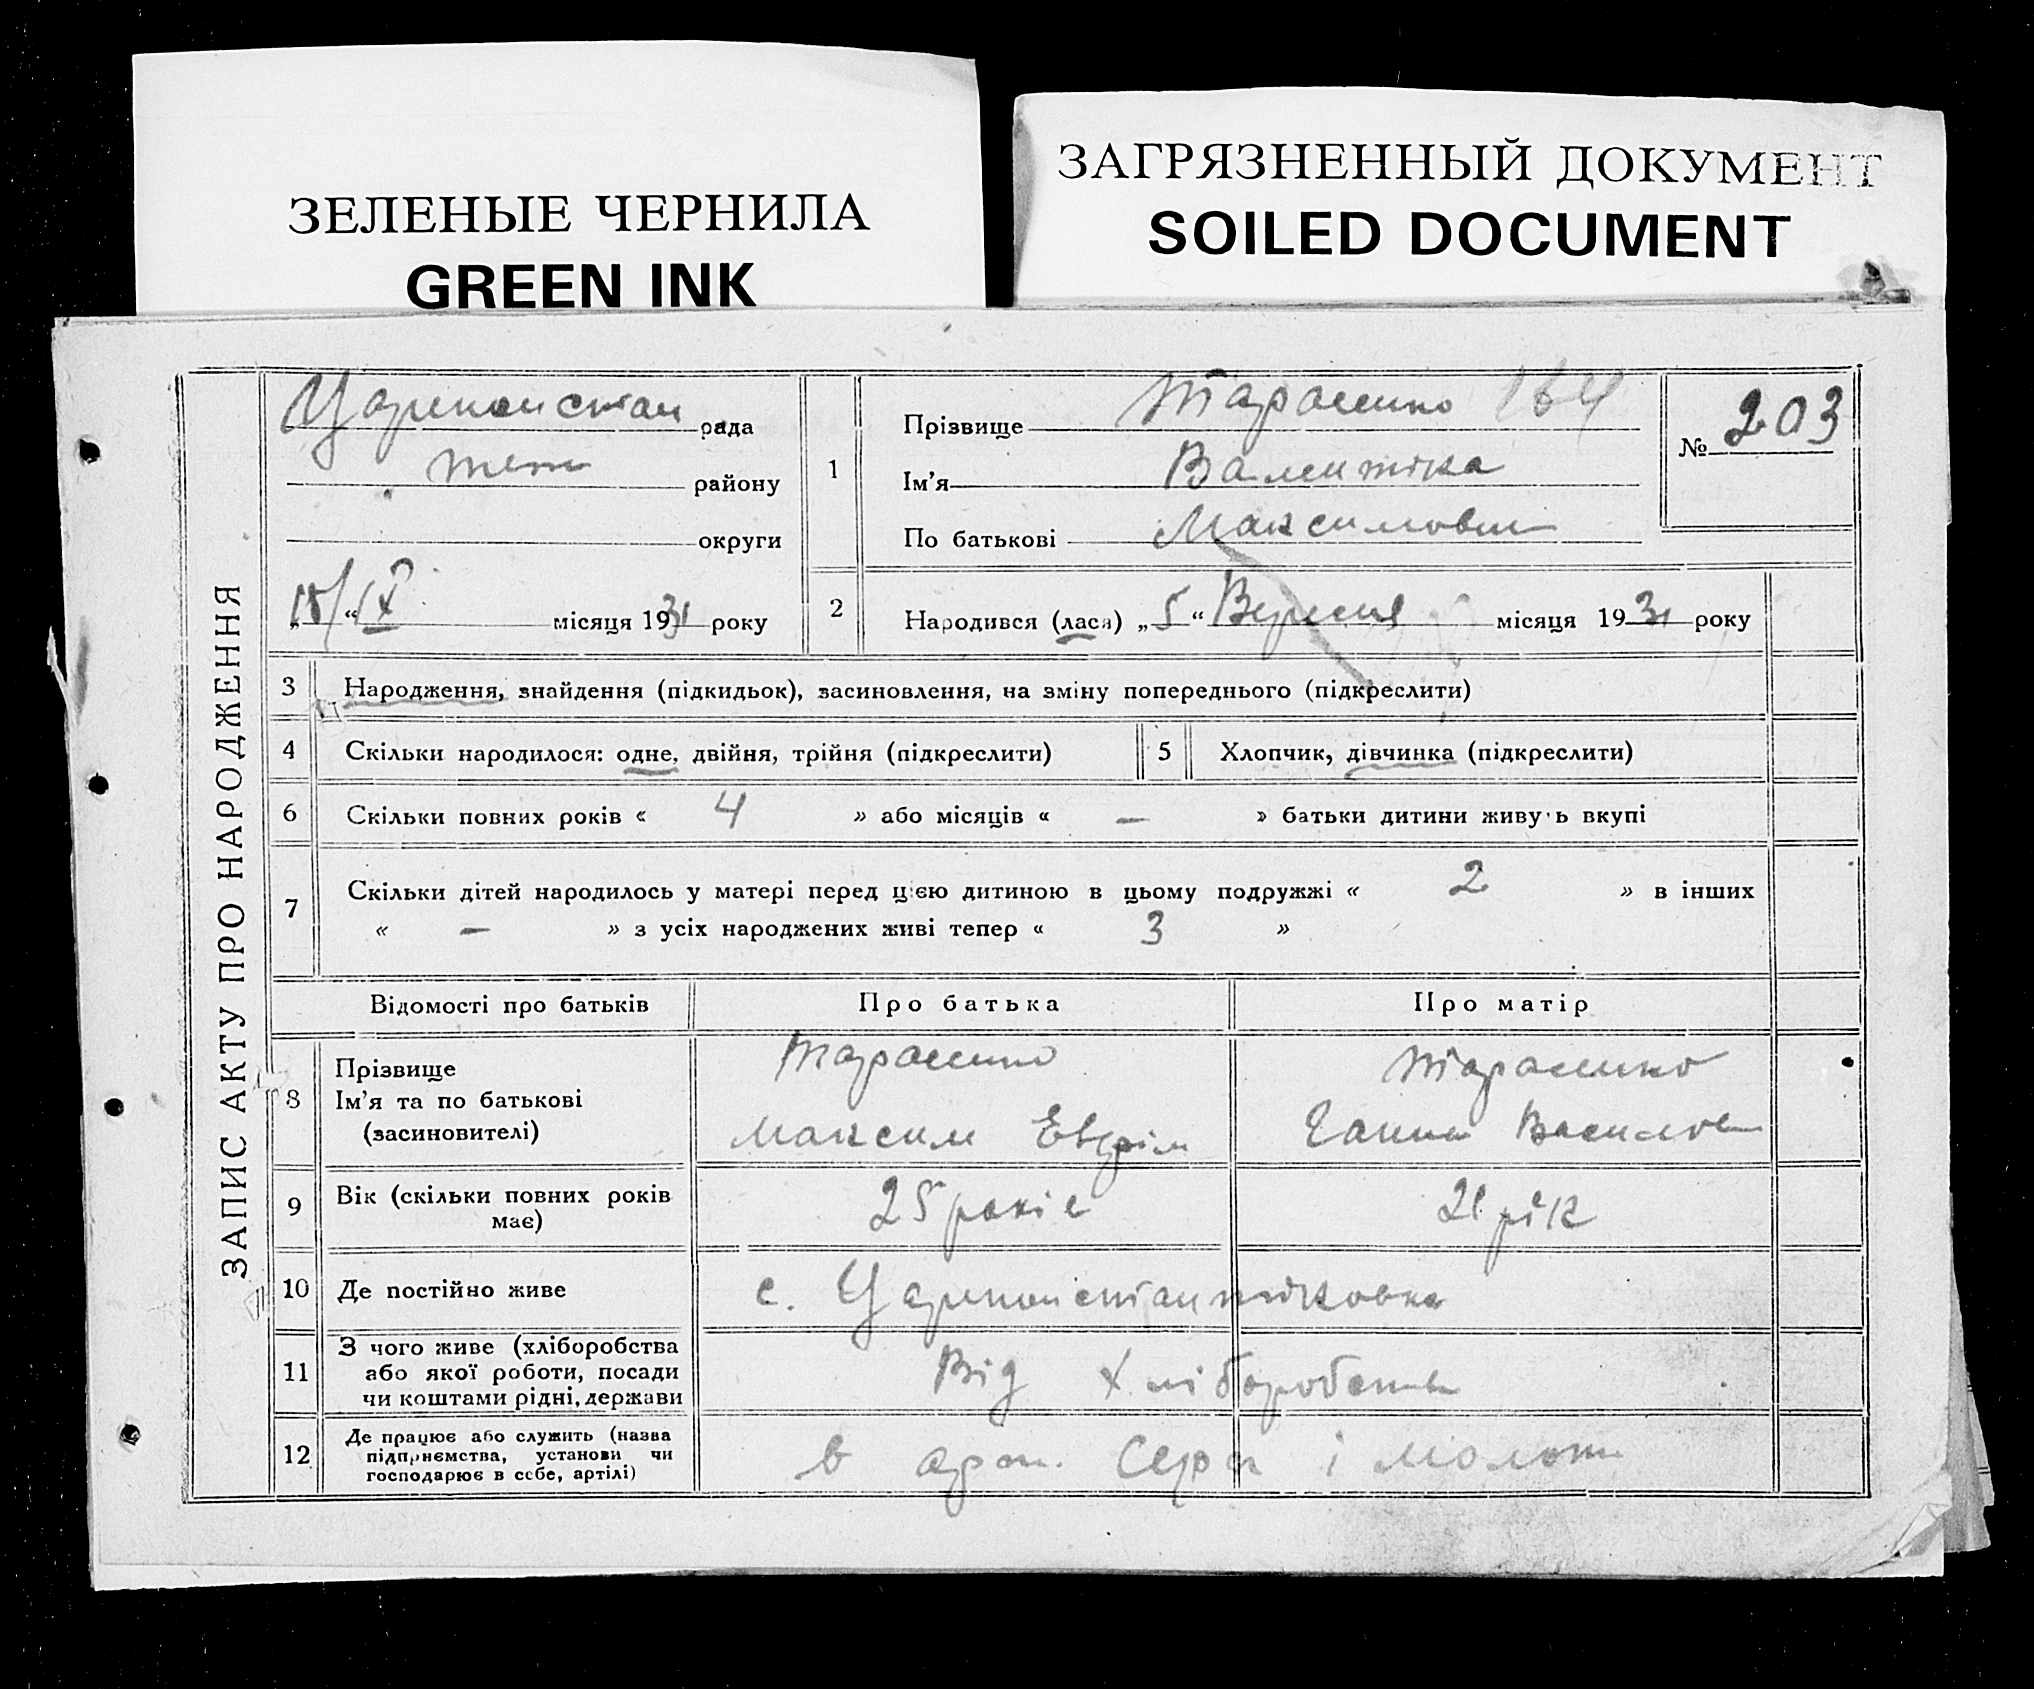 ЗЕЛЕНЫЕ ЧЕРНИЛА
GREEN INK
ЗАГРЯЗНЕННЫЙ ДОКУМЕНТ
SOILED DOCUMENT
ЗАПИС АКТУ ПРО НАРОДЖЕННЯ
рада
району
округи
18/"IX місяця 1931 року
1
Прізвище Тарасенко 164
Ім'я Валентіна
По батькові Максимовн
№ 203
2 Народився (лася) „5" Вересня місяця 1931 року
3 Народження, знайдення (підкидьок), засиновлення, на зміну попереднього (підкреслити)
4 Скільки народилося: одне, двійня, трійня (підкреслити)
5 Хлопчик, дівчинка (підкреслити)
6 Скільки повних років « 4 » або місяців « — » батьки дитини живу ь вкупі
7 Скільки дітей народилось у матері перед цією дитиною в цьому подружжі « 2 » в інших
« — » з усіх народжених живі тепер « 3 »
Відомості про батьків Про батька Про матір
8 Прізвище Тарасенко Тарасенко
Ім'я та по батькові
(засиновителі) Максим Евфрім Ганна Василов
9 Вік (скільки повних років має) 25 років 21 рік
10 Де постійно живе с.
11 З чого живе (хліборобства
або якої роботи, посади
чи коштами рідні, держави Від хліборобства
12 Де працює або служить (назва
підприємства, установи чи
господарює в себе, артілі) в арт. Серп і молот